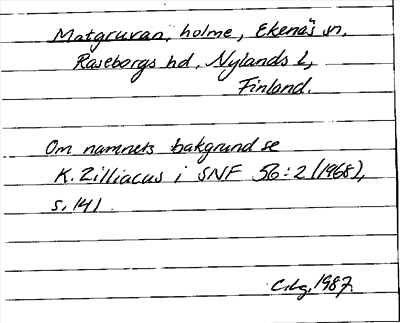 Matgruvan, holme, Ekenäs sn,
Raseborgs hd, Nylands l,
Finland.
Om namnets bakgrund se
K. Zilliacus i SNF 56:2 (1968),
s. 141.
1987.